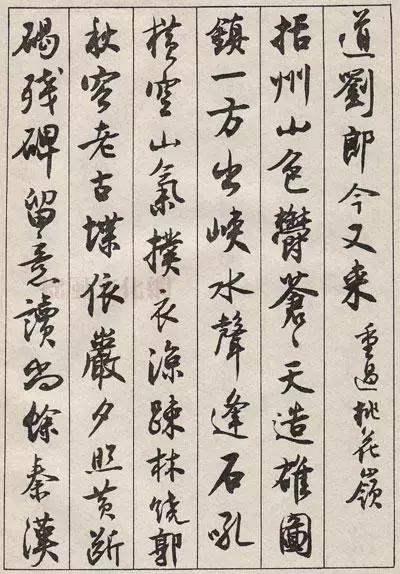 道劉郎今又来 重過桃花嶺
括州山色鬱蒼〻天造雄圖
鎮一方出峽水聲逢石吼
横空山氣撲衣涼疎林繞郭
秋容老古堞依巖夕照黄斷
碣殘碑留意讀尚餘秦漢